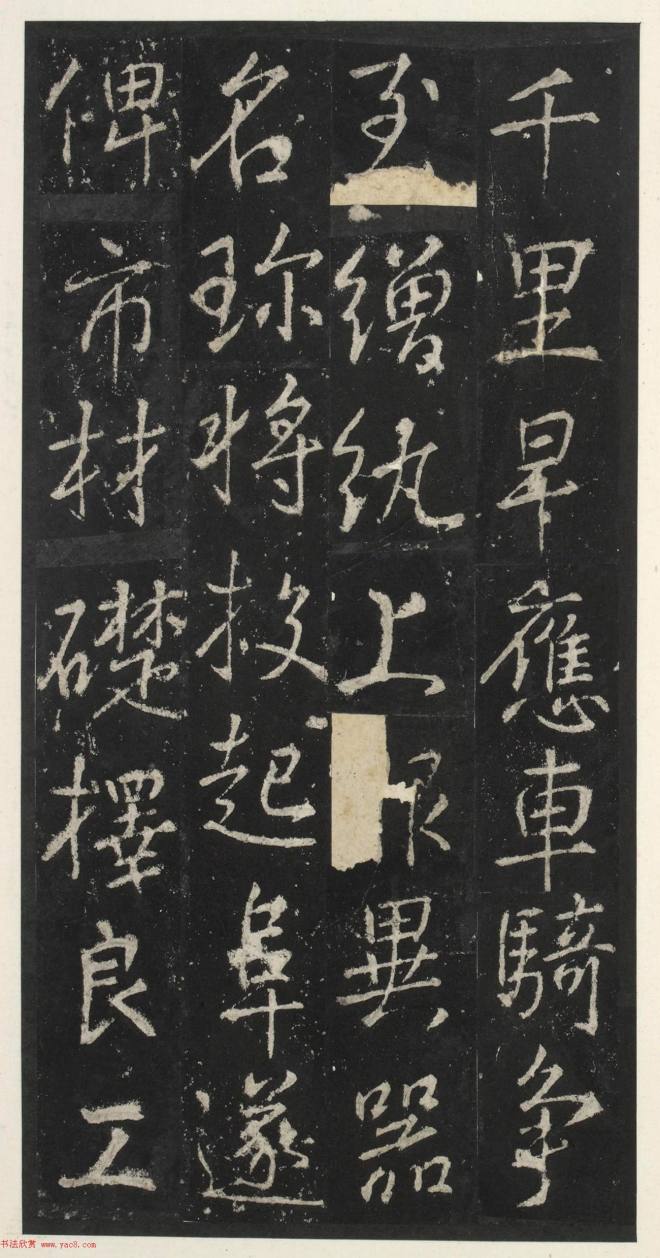 千里早應車騎爭
至繒紈上異器
名珎將投起阜遂
俾市材礎擇良工
书法欣赏 www.yac8.com